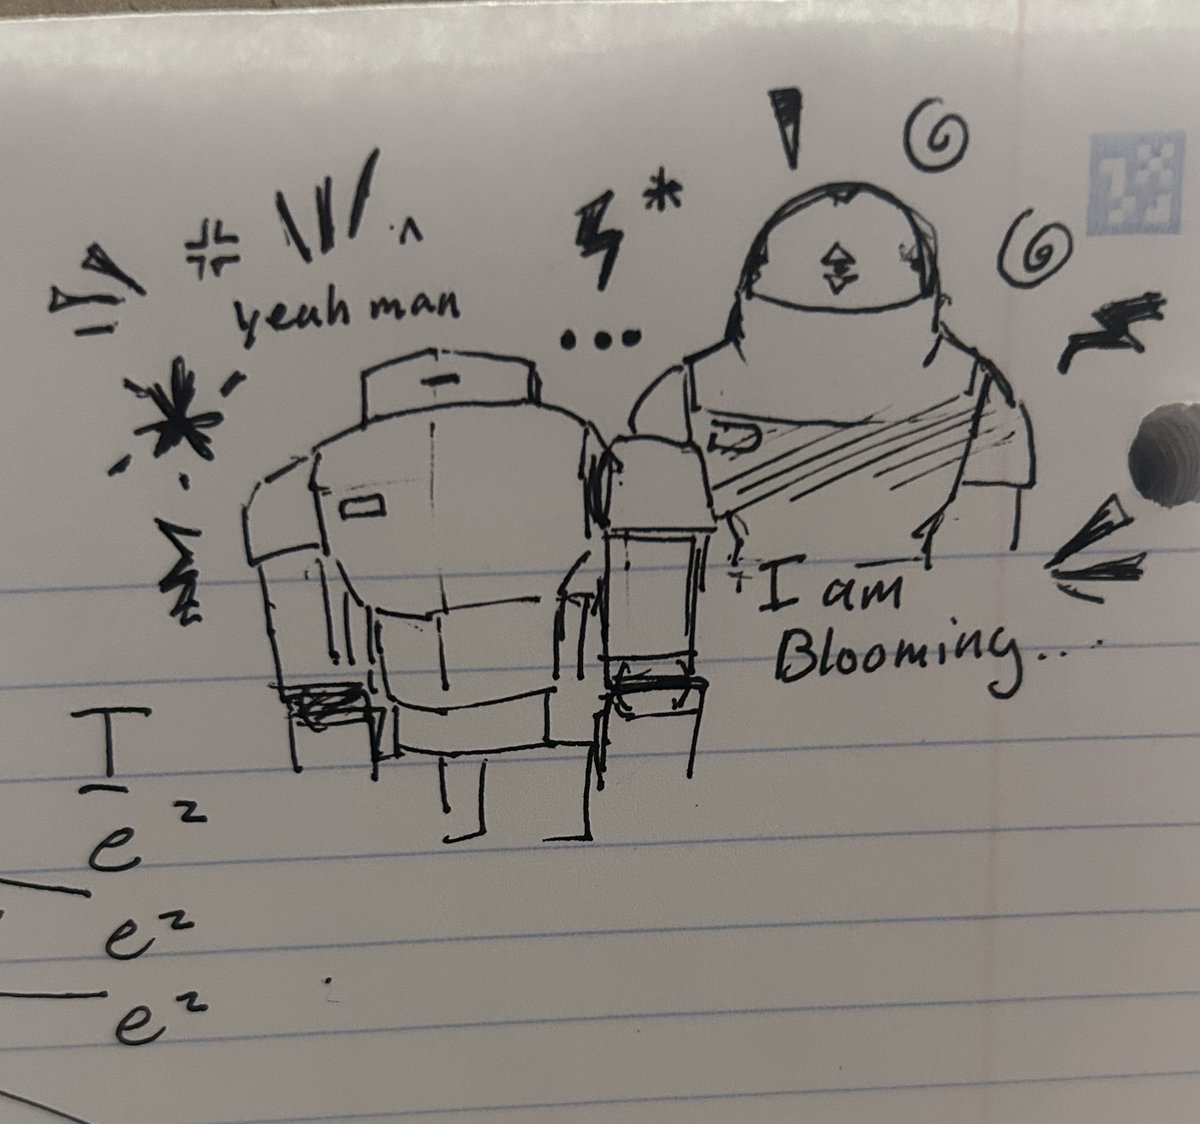 yeah man
I am
Blooming...
T
e²
e²
e²